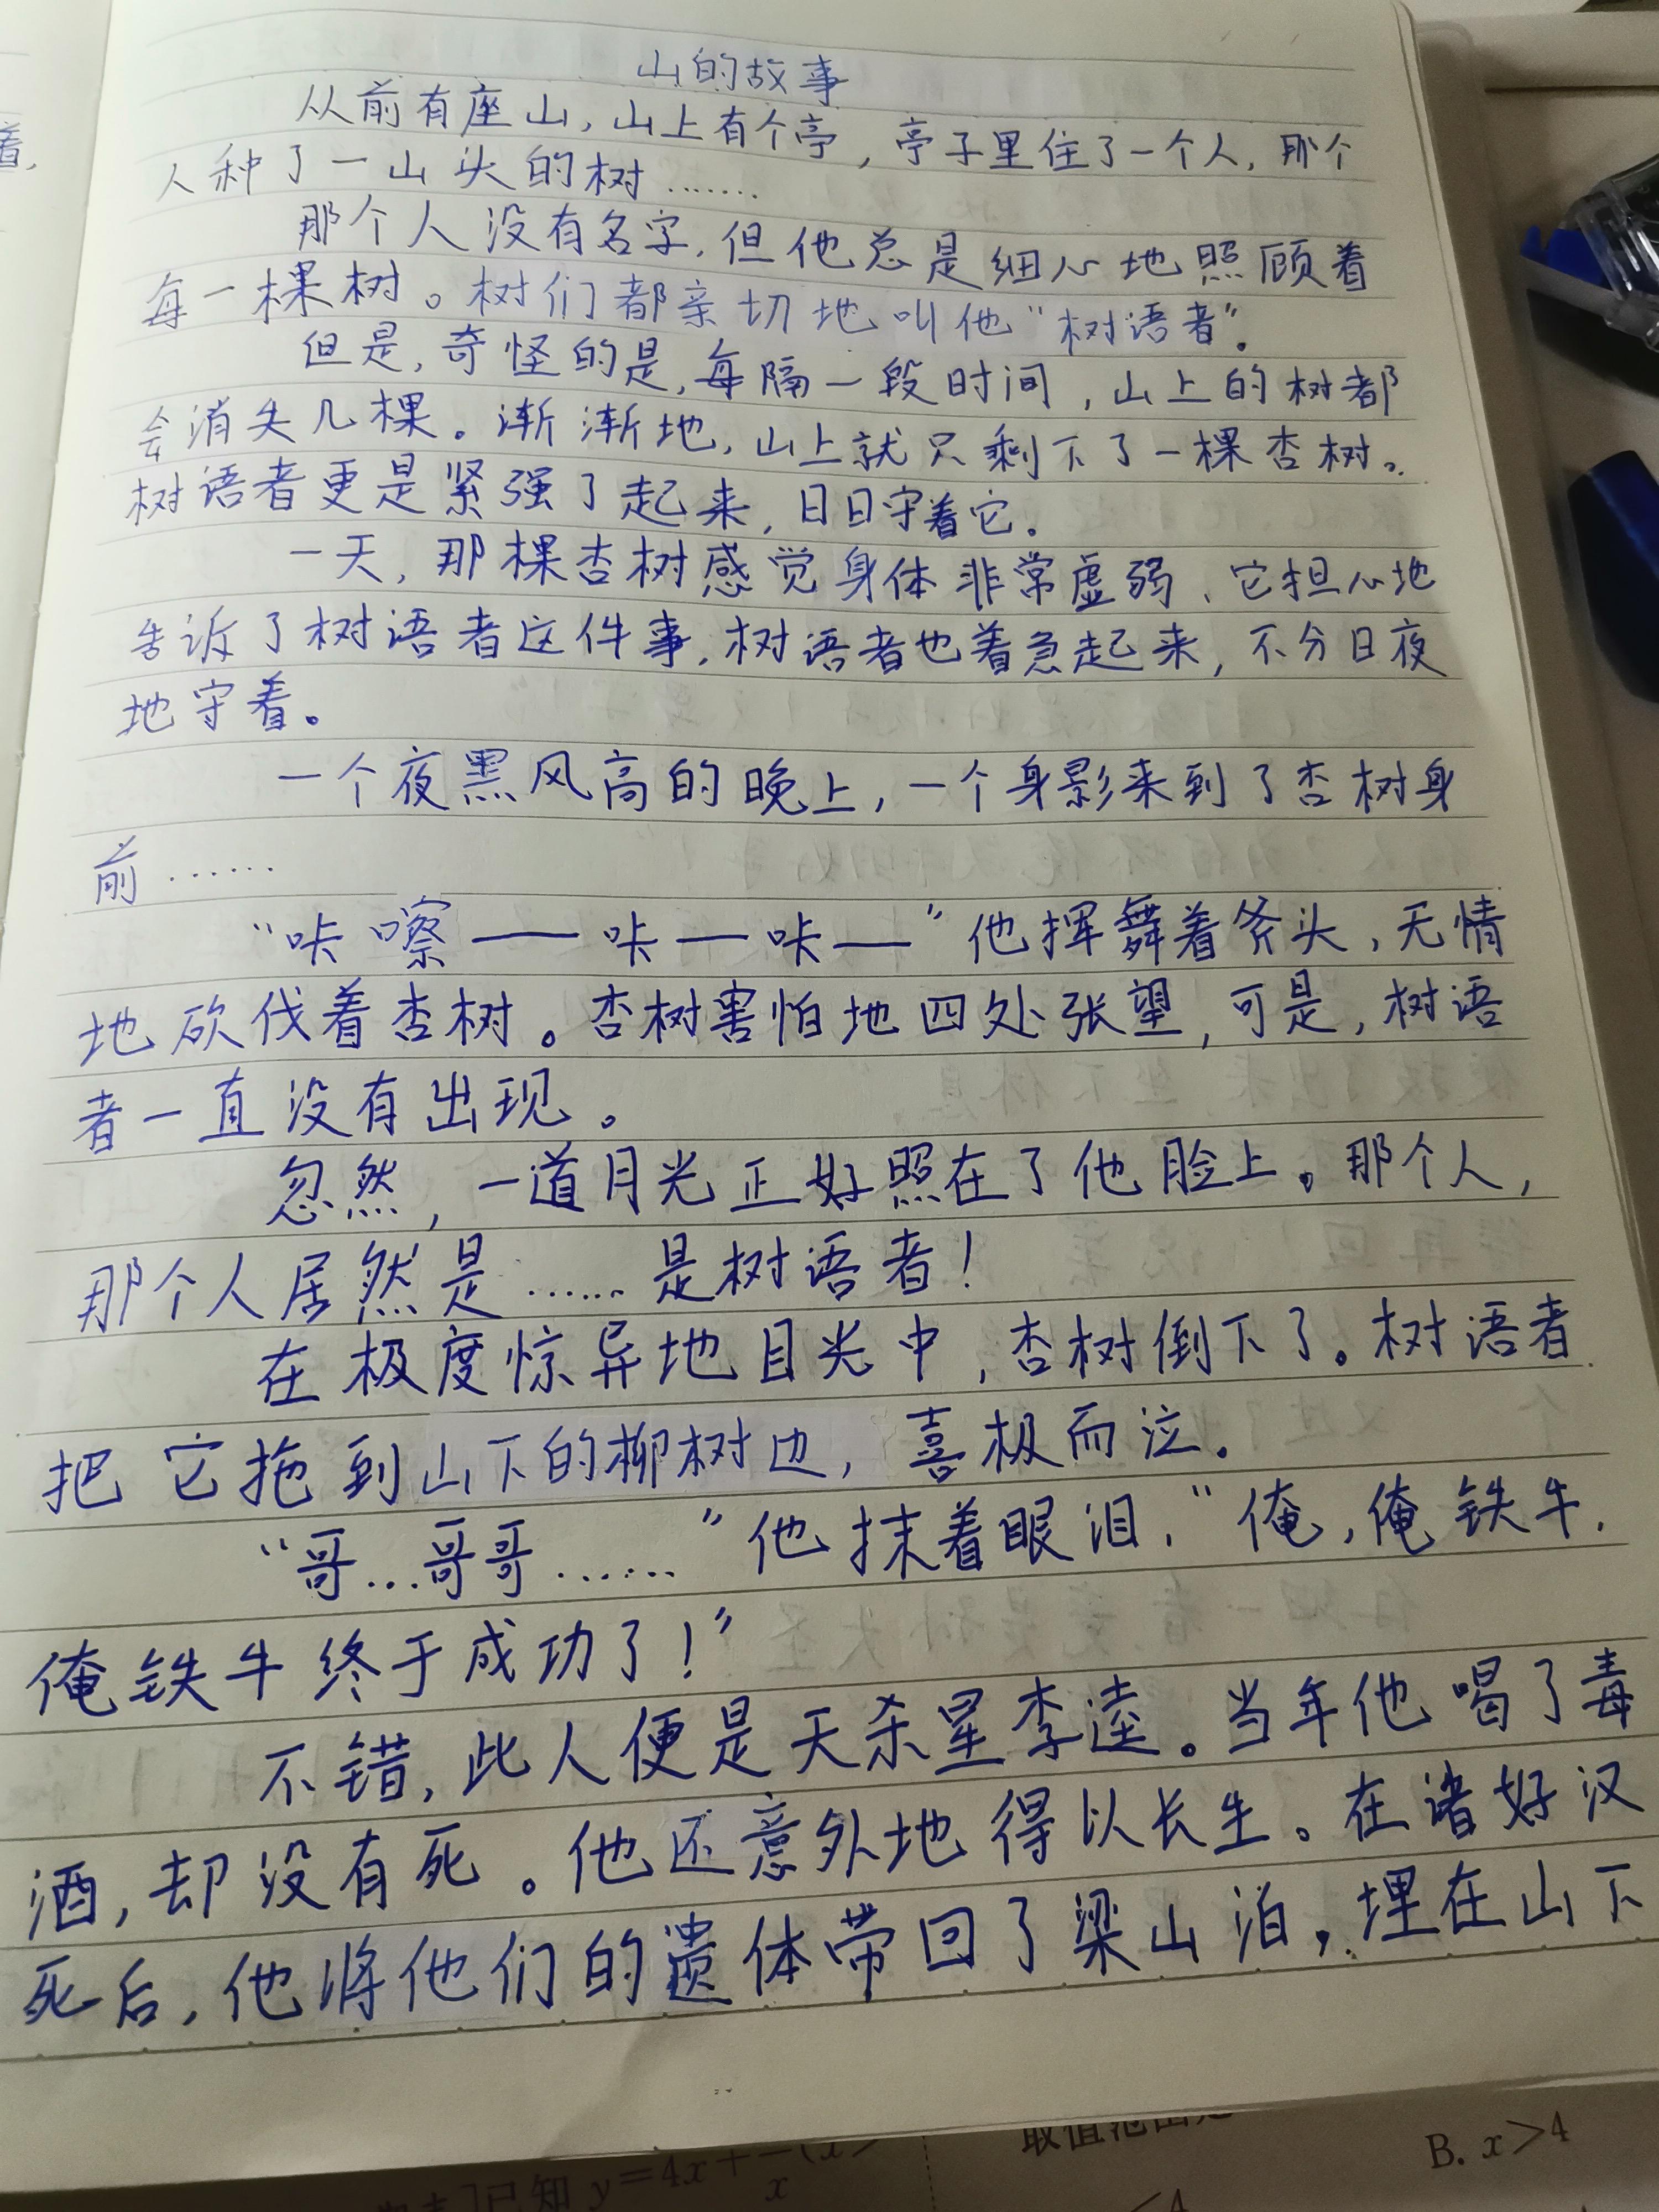 山的故事
从前有座山,山上有个亭,亭子里住了一个人,那个
人种了一山头的树……
那个人没有名字,但他总是细心地照顾着
每一棵树。树们都亲切地叫他“树语者”。
但是,奇怪的是,每隔一段时间,山上的树都
会消失几棵。渐渐地,山上就只剩下了一棵杏树。
树语者更是紧强了起来,日日守着它。
一天,那棵杏树感觉身体非常虚弱,它担心地
告诉了树语者这件事,树语者也着急起来,不分日夜
地守着。
一个夜黑风高的晚上,一个身影来到了杏树身
前……
“咔嚓——咔—咔—”他挥舞着斧头,无情
地砍伐着杏树。杏树害怕地四处张望,可是,树语
者一直没有出现。
忽然,一道月光正好照在了他脸上。那个人,
那个人居然是……是树语者!
在极度惊异地目光中,杏树倒下了。树语者
把它拖到山下的柳树边,喜极而泣。
“哥…哥哥……”他抹着眼泪,“俺,俺铁牛,
俺铁牛终于成功了!”
不错,此人便是天杀星李逵。当年他喝了毒
酒,却没有死。他还意外地得以长生。在诸好汉
死后,他将他们的遗体带回了梁山泊,埋在山下
着,
已知 y=4x+
x
取值范围是
B. x>4